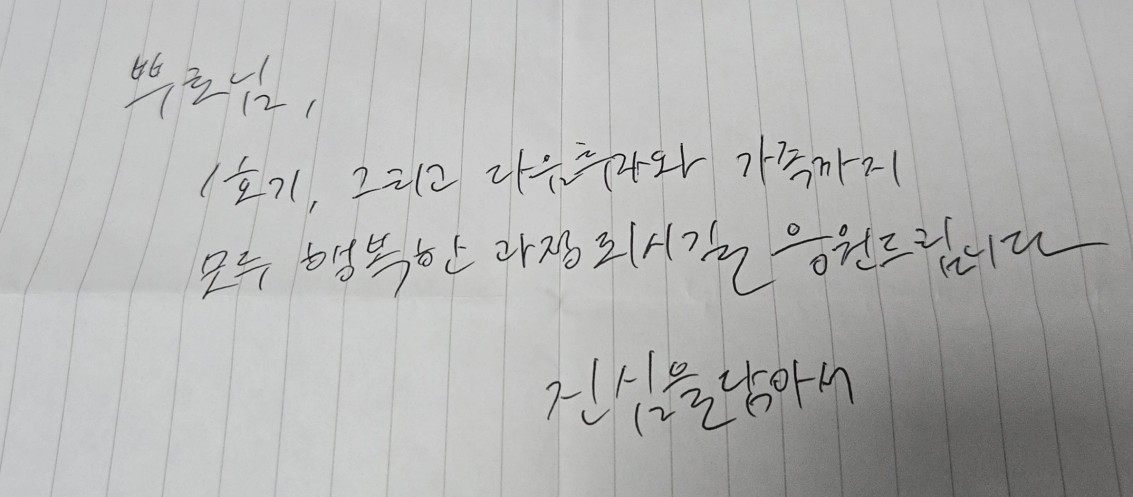 뿌로님,
1호기, 그리고 가족까지
모두 행복한 과정 되시길 응원드립니다
진심을 담아서